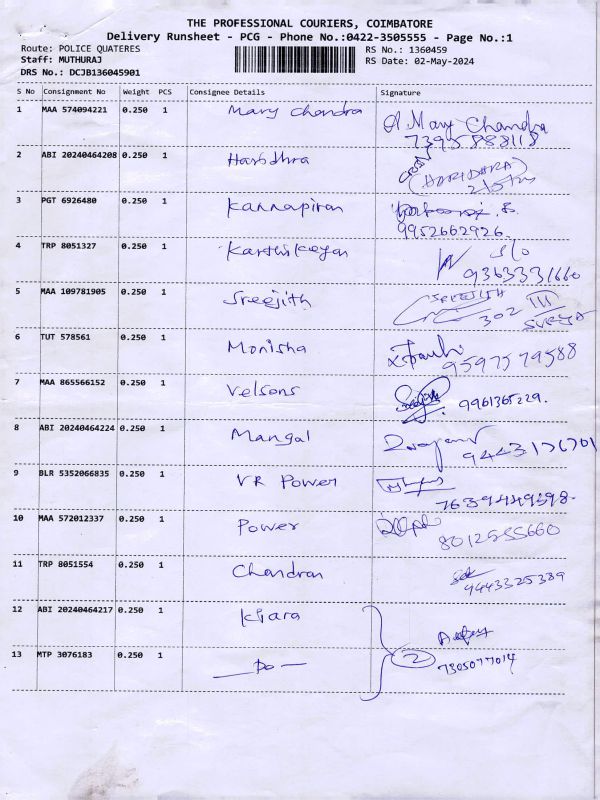 THE PROFESSIONAL COURIERS, COIMBATORE
Delivery Runsheet - PCG - Phone No.:0422-3505555 - Page No.:1
Route: POLICE QUATERES RS No.: 1360459
Staff: MUTHURAJ RS Date: 02-May-2024
DRS No.: DCJB136045901
S No Consignment No Weight PCS Consignee Details Signature
1 MAA 574094221 0.250 1 Mary Chandra A Mary Chandra
7395888118
2 ABI 20240464208 0.250 1 Haridhra
(HARIDHRA)
3 PGT 6926480 0.250 1 Kannapiran
9952662926.
4 TRP 8051327 0.250 1 Karthikeyan S/o
9363331660
5 MAA 109781905 0.250 1 Sreejith SREEJITH
302 III
SURYA
6 TUT 578561 0.250 1 Monisha
9597579588
7 MAA 865566152 0.250 1 Velsons
9961365229.
8 ABI 20240464224 0.250 1 Mangal
9443176701
9 BLR 5352066835 0.250 1 VR Power
7639449598.
10 MAA 572012337 0.250 1 Power
8012555660
11 TRP 8051554 0.250 1 Chandran
9443325389
12 ABI 20240464217 0.250 1 Kiara
13 MTP 3076183 0.250 1 —Do— 2
7305077014